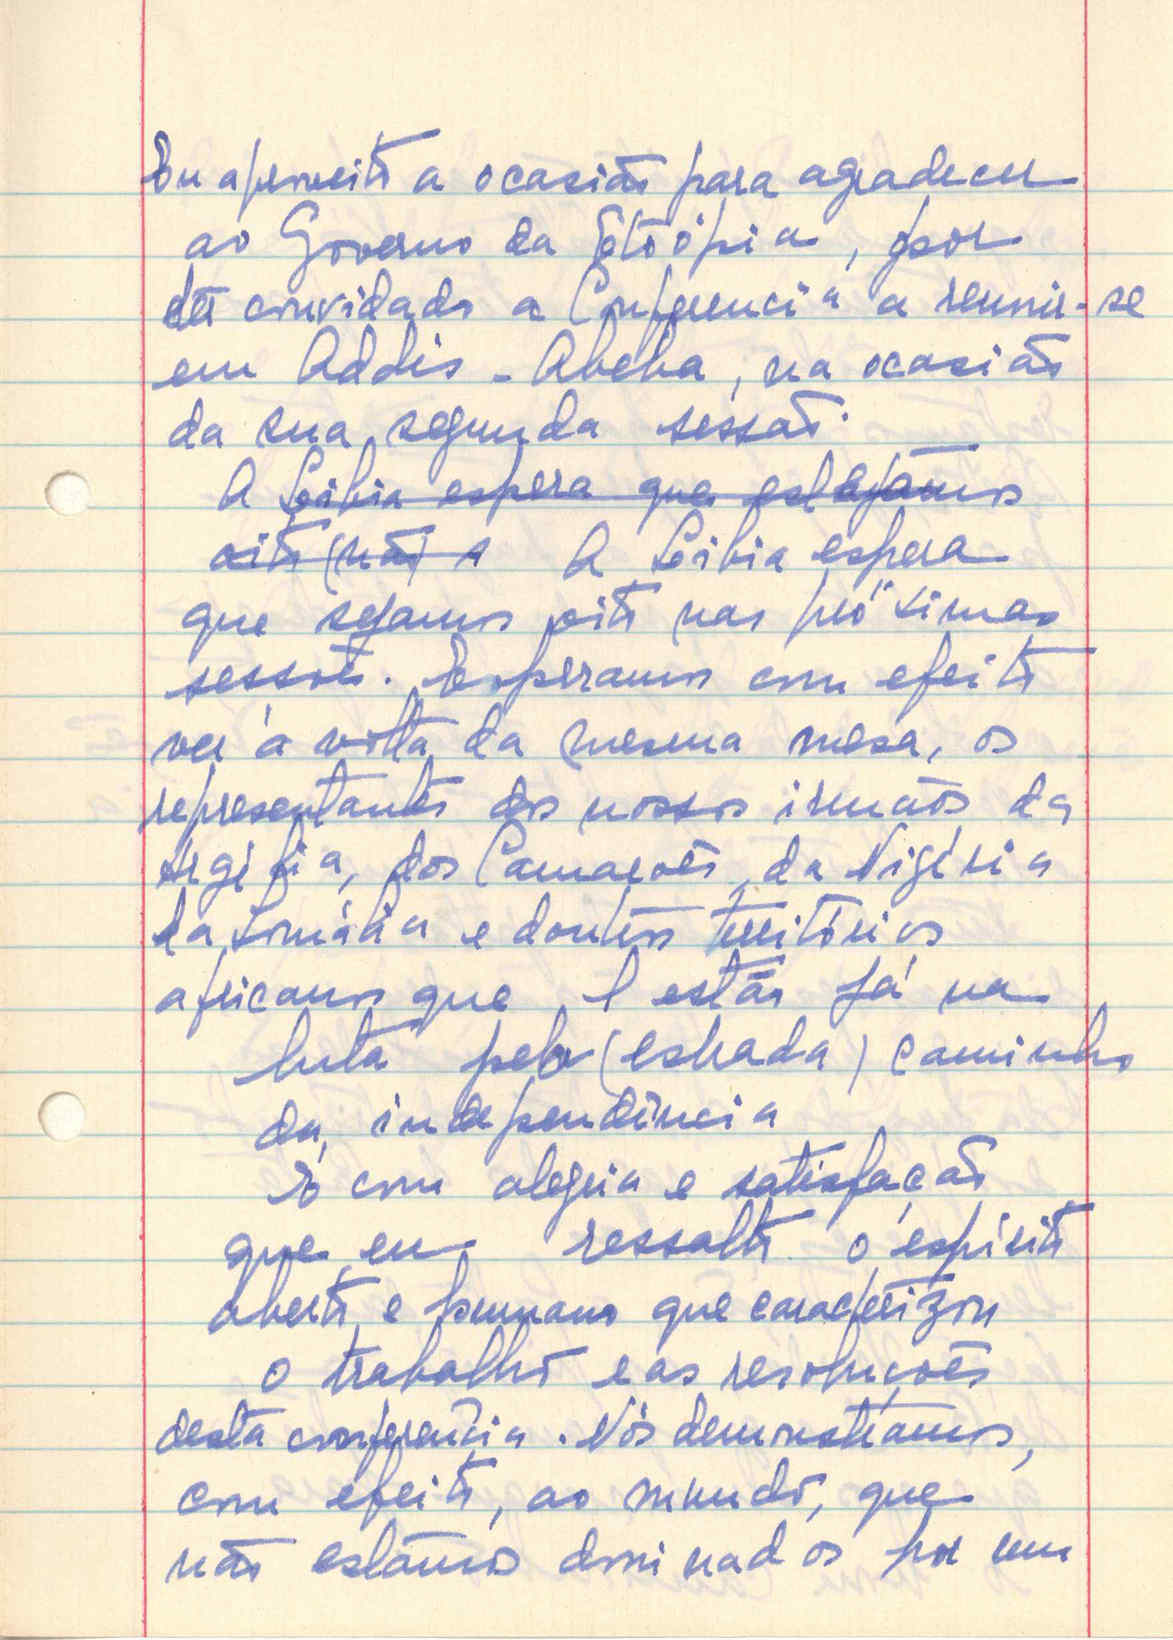 Eu aproveito a ocasião para agradecer
ao Governo da Etiópia, por
ter convidado a Conferencia a reunir-se
em Addis-Abeba, na ocasião
da sua segunda sessão.
A Líbia espera que estejamos
oito (não) A Líbia espera
que sejamos oito nas próximas
sessões. Esperamos com efeito
ver à volta da mesma mesa, os
representantes dos nossos irmãos da
Argélia, dos Camarões, da Nigéria
da Somália e doutros territórios
africanos que estão já na
luta pelo (estrada) caminho
da independência
É com alegria e satisfação
que eu ressalto o espírito
aberto e humano que caracterizou
o trabalho e as resoluções
desta conferência. Nós demonstramos,
com efeito, ao mundo, que
não estamos dominados por um